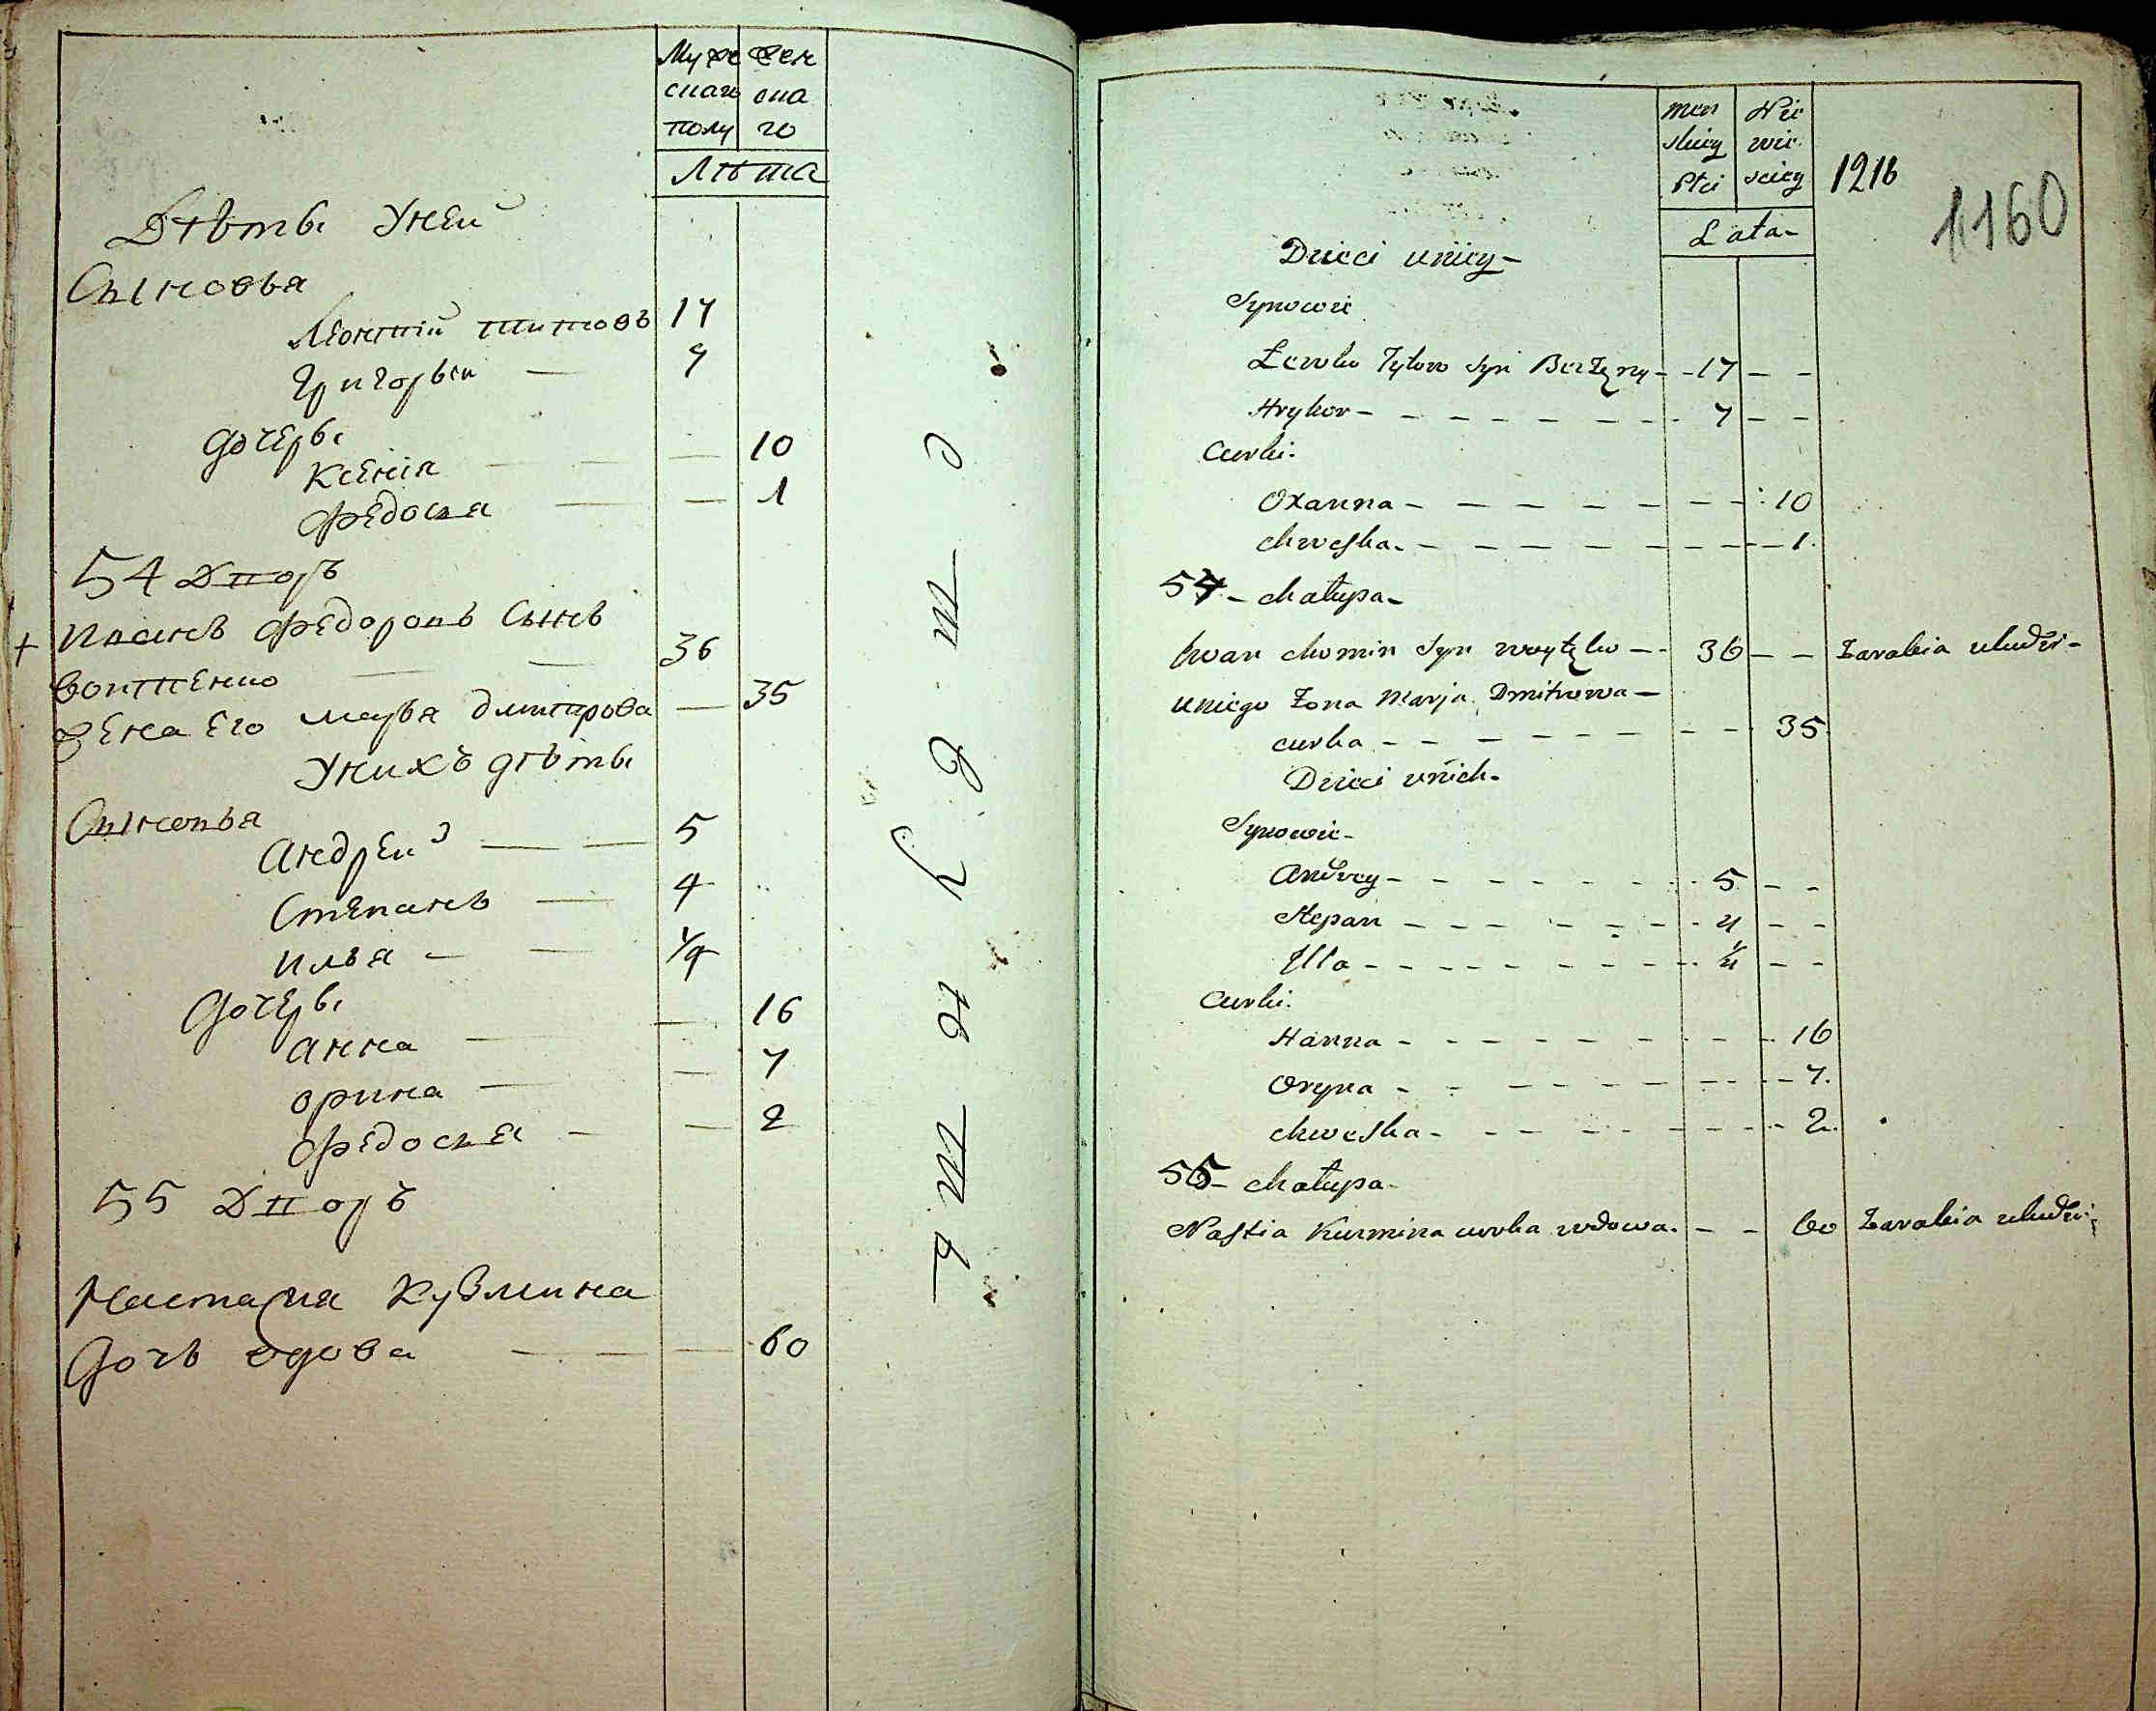 Муже жен
скаго ска
полу го
Лѣта
Дѣти У ней
Сыновья
Леонтій Титовъ 17
Григорьи — 7
Дочери
Ксенія — — — 10
Федосья — — 1
54 Дворъ
+ Иванъ Федоровъ Сынъ
— — 36
Жена Его Марья Дмитрова — 35
У нихъ дѣти
Сыновья
Андреи — — 5
Степанъ — 4
Илья — — 1/4
Дочери
Анна — — 16
Орина — — 7
Федосья — — 2
55 Дворъ
Настасия Кузмина
Дочь вдова — — — 60
męz Nie
skiey wie
Płci sciey
1216
1160
Lata
Dzieci u niey
Synowie
Lewko Tytow syn - 17 - -
Hryhor - 7 - -
Curki
Oxanna - 10
Chweska - 1
54 - Chałupa
Iwan Chomin syn - 36 - - Zarabia u ludzi
u niego Żona Marja Dmitrowa
curka - 35
Dzieci u nich
Synowie
Andrey - 5 - -
Stepan - 4 - -
Illa - 1/4 - -
Curki
Hanna - 16
Oryna - 7
Chweska - 2
55 - Chałupa
Nastia Kuzmina curka wdowa - - 60 Zarabia u ludzi